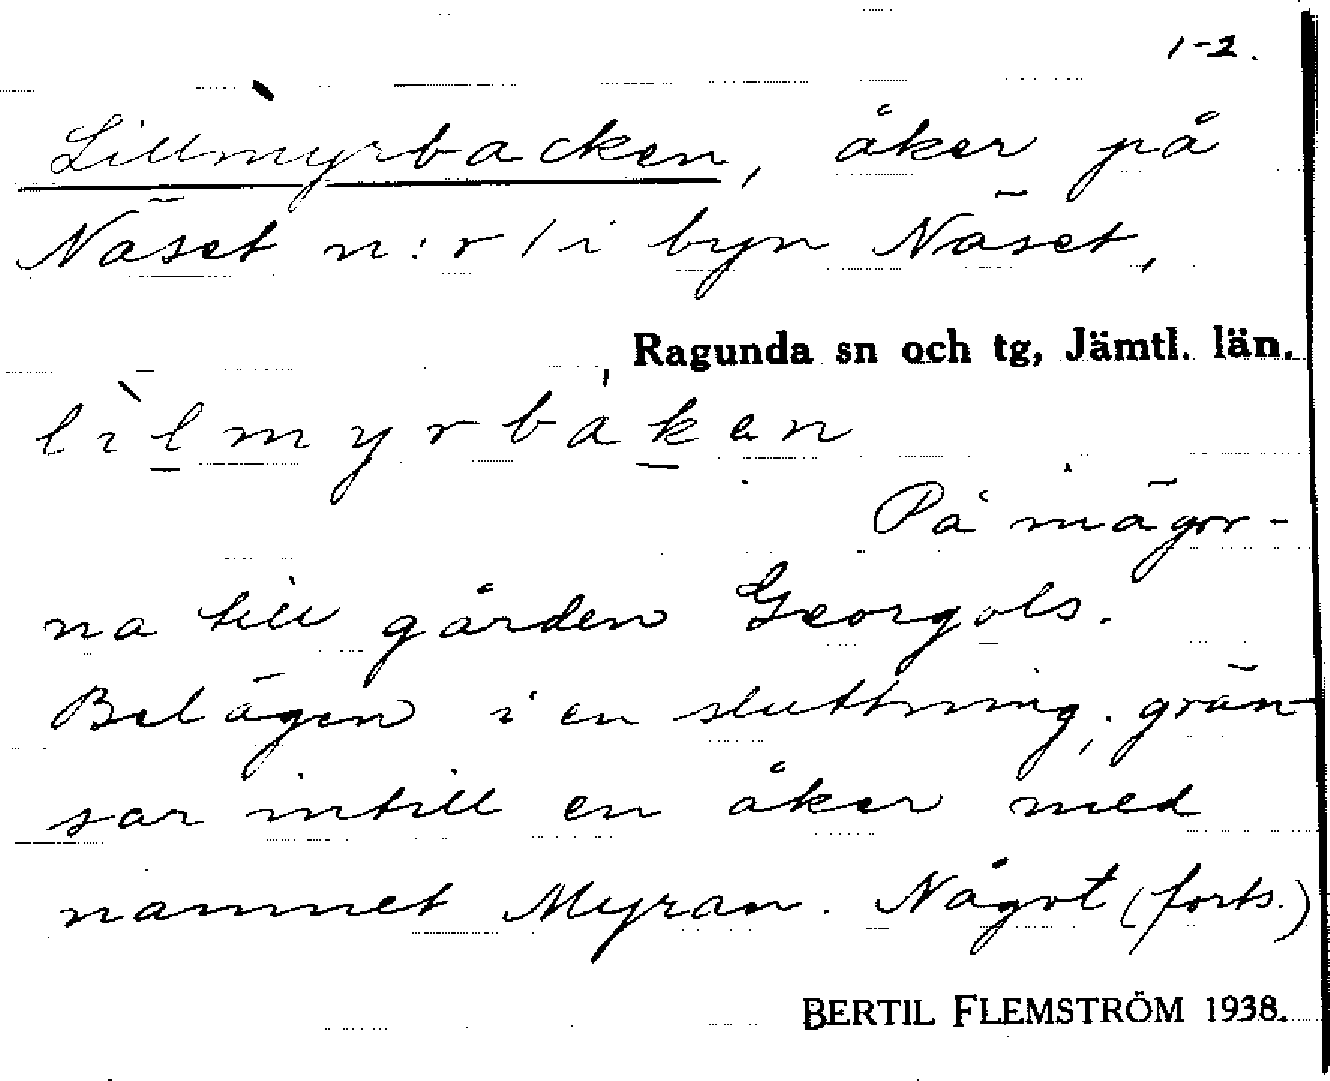 1-2.
Lillmyrbacken, åker på
Näset n:r 1 i byn Näset,
Ragunda sn och tg, Jämtl. län.
lilmyrbaken
På mägor-
na till gården Georgols.
Belägen i en sluttning; grän-
sar intill en åker med
namnet Myran. Något (forts.)
BERTIL FLEMSTRÖM 1938.